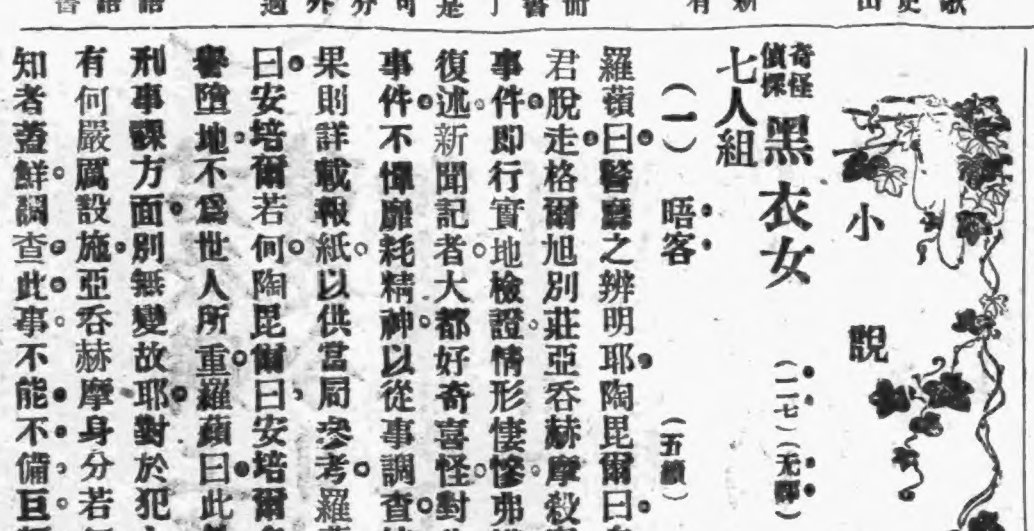 小說
奇怪偵探
七人組
黑衣女
(二七)(无譯)
(一) 晤客
(五續)
羅蘋曰警廳之辨明耶陶毘爾曰
君脫走格爾旭別莊亞吞赫摩殺
事件即行實地檢證情形悽慘弗
復述新聞記者大都好奇喜怪對
事件不憚靡耗精神以從事調查
果則詳載報紙以供當局參考羅
曰安培爾若何陶毘爾曰安培爾
譽墮地不爲世人所重羅蘋曰此
刑事課方面別無變故耶對於犯
有何嚴厲設施亞吞赫摩身分若
知者蓋鮮調查此事不能不備巨